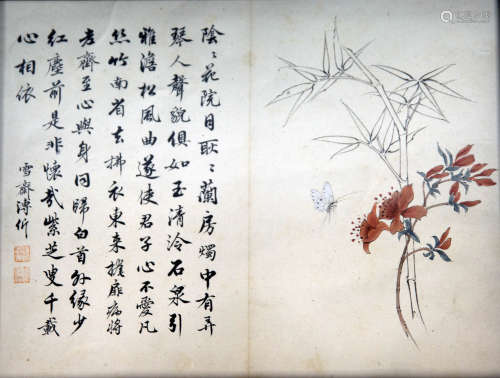 陰〻花院月耿〻蘭房燭中有弄
琴人聲貌俱如玉清泠石泉引
雅澹松風曲遂使君子心不愛凡
絲竹南省去拂衣東来扉病將
老齋至心與身同歸白首外緣少
紅塵前是非懷哉紫芝叟千載
心相依
雪齋溥伒